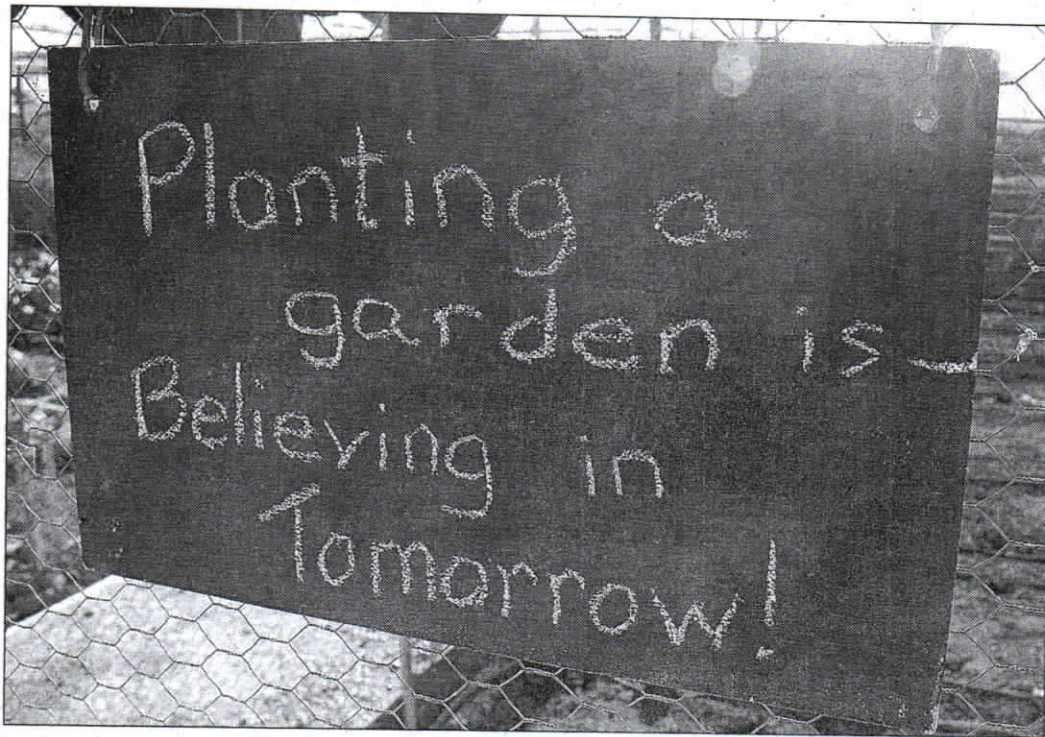 Planting a
garden is
Believing in
Tomorrow!